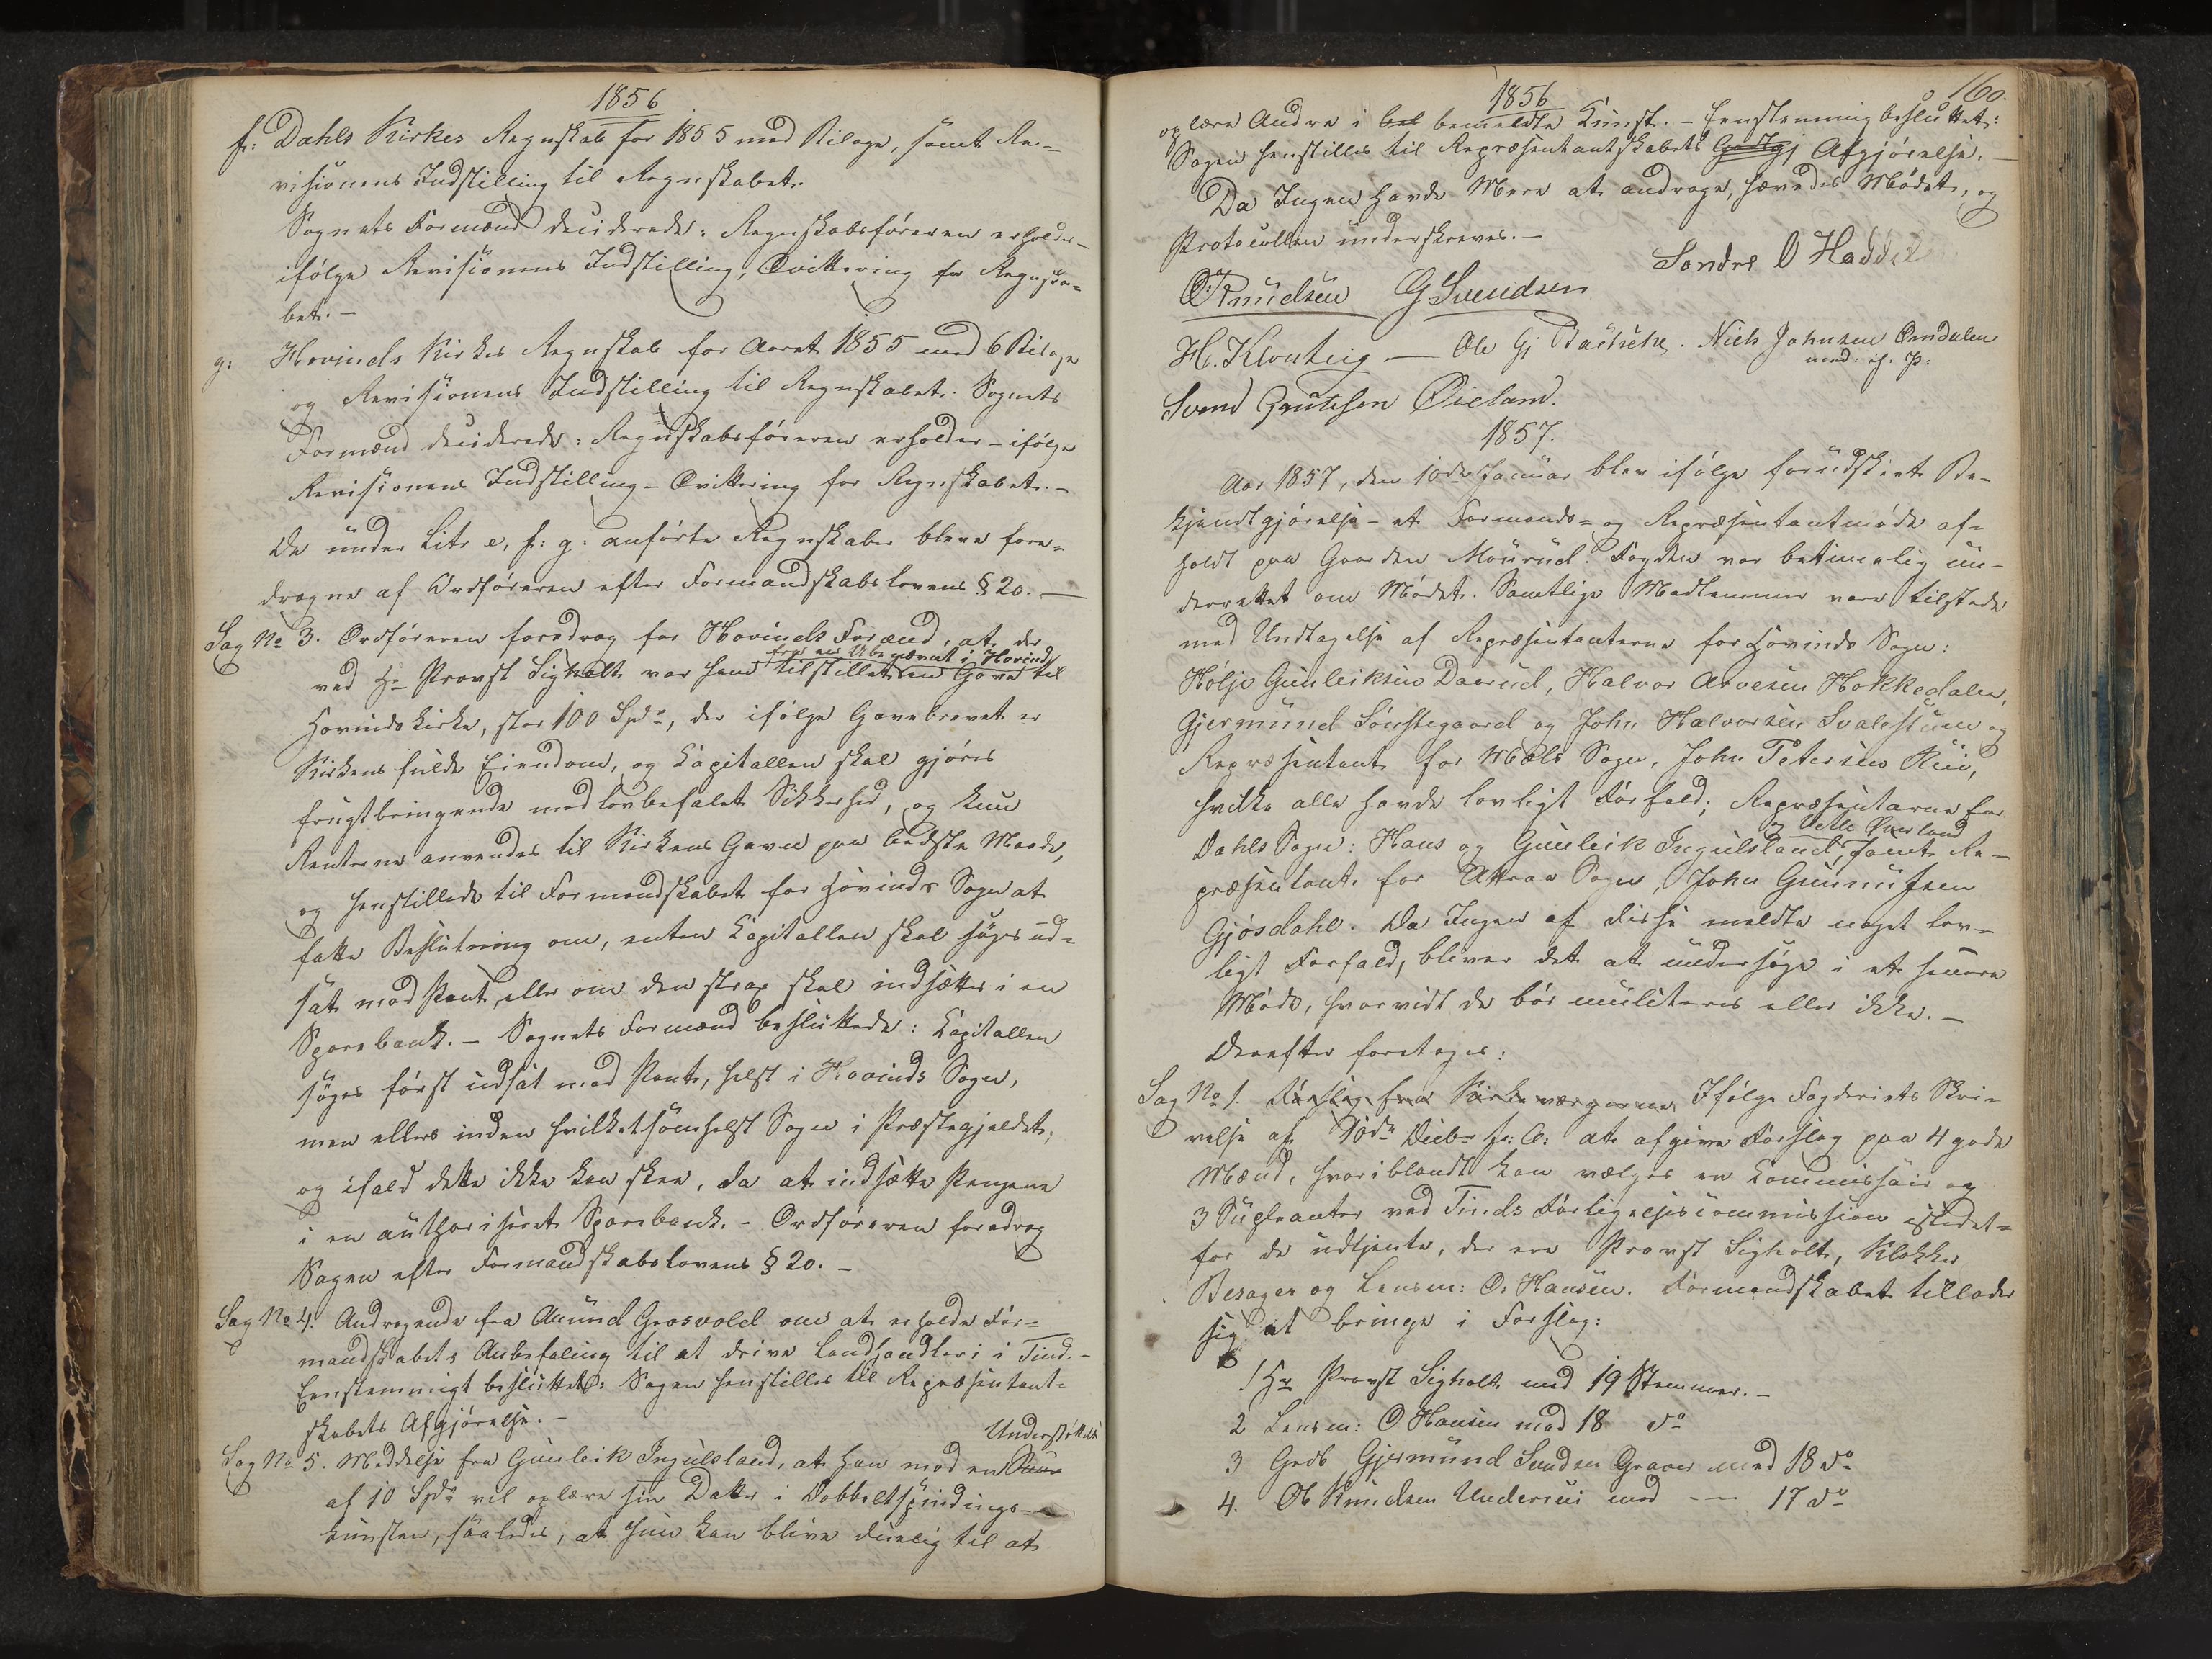 1856
f: Dahls Kirkes Regnskab for 1855 med Bilage, samt Re-
visionens Indstilling til Regnskabet.
Sognets Formænd deciderede: Regnskabsføreren erholder -
ifølge Revisionens Indstilling, Qvittering for Regnska-
bet. -
g: Hovinds Kirkes Regnskab for Aaret 1855 med 6 Bilage
og Revisionens Indstilling til Regnskabet. Sognets
Formænd deciderede: Regnskabsføreren erholder - ifølge
Revisionens Indstilling - Qvittering for Regnskabet. -
De under Litr e, f: g: anførte Regnskaber bleve fore-
dragne af Ordføreren efter Formandskabslovens § 20. -
Sag No 3. Ordføreren foredrog for Hovinds Formænd, at der
fra en Ubenævnt i Hovind
ved Hr Provst Sigholt var ham tilstillet en Gave til
Hovinds Kirke, stor 100 Spd, der ifølge Gavebrevet er
Kirkens fulde Eiendom, og Capitallen skal gjøres
frugtbringende mod lovbefalet Sikkerhed, og kun
Renterne anvendes til Kirkens Gavn paa bedste Maade,
og henstillede til Formandskabet for Hovinds Sogn at
fatte Beslutning om, enten Capitallen skal søges ud-
sat mod Pant, eller om den strax skal indsættes i en
Sparebank. - Sognets Formænd besluttede: Capitallen
søges først udsat mod Pant, helst i Hovinds Sogn,
men ellers inden hvilketsomhelst Sogn i Præstegjeldet,
og ifald dette ikke kan skee, da at indsætte Pengene
i en authoriseret Sparebank. - Ordføreren foredrog
Sagen efter Formandskabslovens § 20. -
Sag No 4. Andragende fra Amund Grosvold om at erholde For-
mandskabets Anbefaling til at drive Landhandleri i Tind. -
Eenstemmigt besluttet: Sagen henstilles til Repræsentant-
skabets Afgjørelse. -
Understøttelse
Sag No 5. Meddelelse fra Gunleik Ingulsland, at han mod en
af 10 Spd vil oplære sin Datter i Dobbeltspindings-
kunsten, saaledes, at hun kan blive duelig til at
160.
1856
oplære Andre i bel bemeldte Kunst. - Eenstemmig besluttet:
Sagen henstilles til Repræsentantskabets Godtgj Afgjørelse. -
Da Ingen havde Mere at andrage, hævedes Mødet, og
Protocollen underskreves. -
Sondre O Haddel
O Knudsen G. Svendsen
H. Klouteig - Ole Gj Niels Johnsen Omdalen
med. p. P.
Svend Gunlesen Øieland.
1857.
Aar 1857, den 10de Januar blev ifølge forudskeet Be-
kjendtgjørelse - et Formands- og Repræsentantmøde af-
holdt paa Gaarden Mourud. Fogden var betimelig un-
derrettet om Mødet. Samtlige Medlemmer vare tilstede
med Undtagelse af Repræsentanterne for Hovinds Sogn:
Høljo Gunleiksen Daarud, Halvor Arvesen Hokkedalen,
Gjermund Sønstegaard og John Halvorsen Svalestuen og
Repræsentant for Mæls Sogn, John Petersen Rui,
hvilke alle havde lovligt Forfald; Repræsentarne for
og Vetle Øverland
Dahls Sogn: Hans og Gunleik Ingulsland, samt Re-
præsentant for Attraa Sogn, John Gunnufsen
Gjøsdahl. Da Ingen af disse meldte noget lov-
ligt Forfald, bliver det at undersøge i et senere
Møde, hvorvidt de bør mulcteres eller ikke. -
Derefter foretoges:
Sag No 1. Forslag fra Kirkeværgerne Ifølge Fogderiets Skri-
velse af 10de Decbr f: A: at afgive Forslag paa 4 gode
Mænd, hvoriblandt kan vælges en Commissair og
3 Supleanter ved Tinds Forligelsescommission istedet-
for de udtjente, der ere Provst Sigholt, Klokker
Besager og Lensm: O. Hansen. Formandskabet tillader
sig at bringe i Forslag:
1 Hr Provst Sigholt med 19 Stemmer. -
2 Lensm: O Hansen med 18 do
3 Grdb Gjermund Svendsen Graver med 18 do
4. Ole Knudsen Underrui med - 17 do